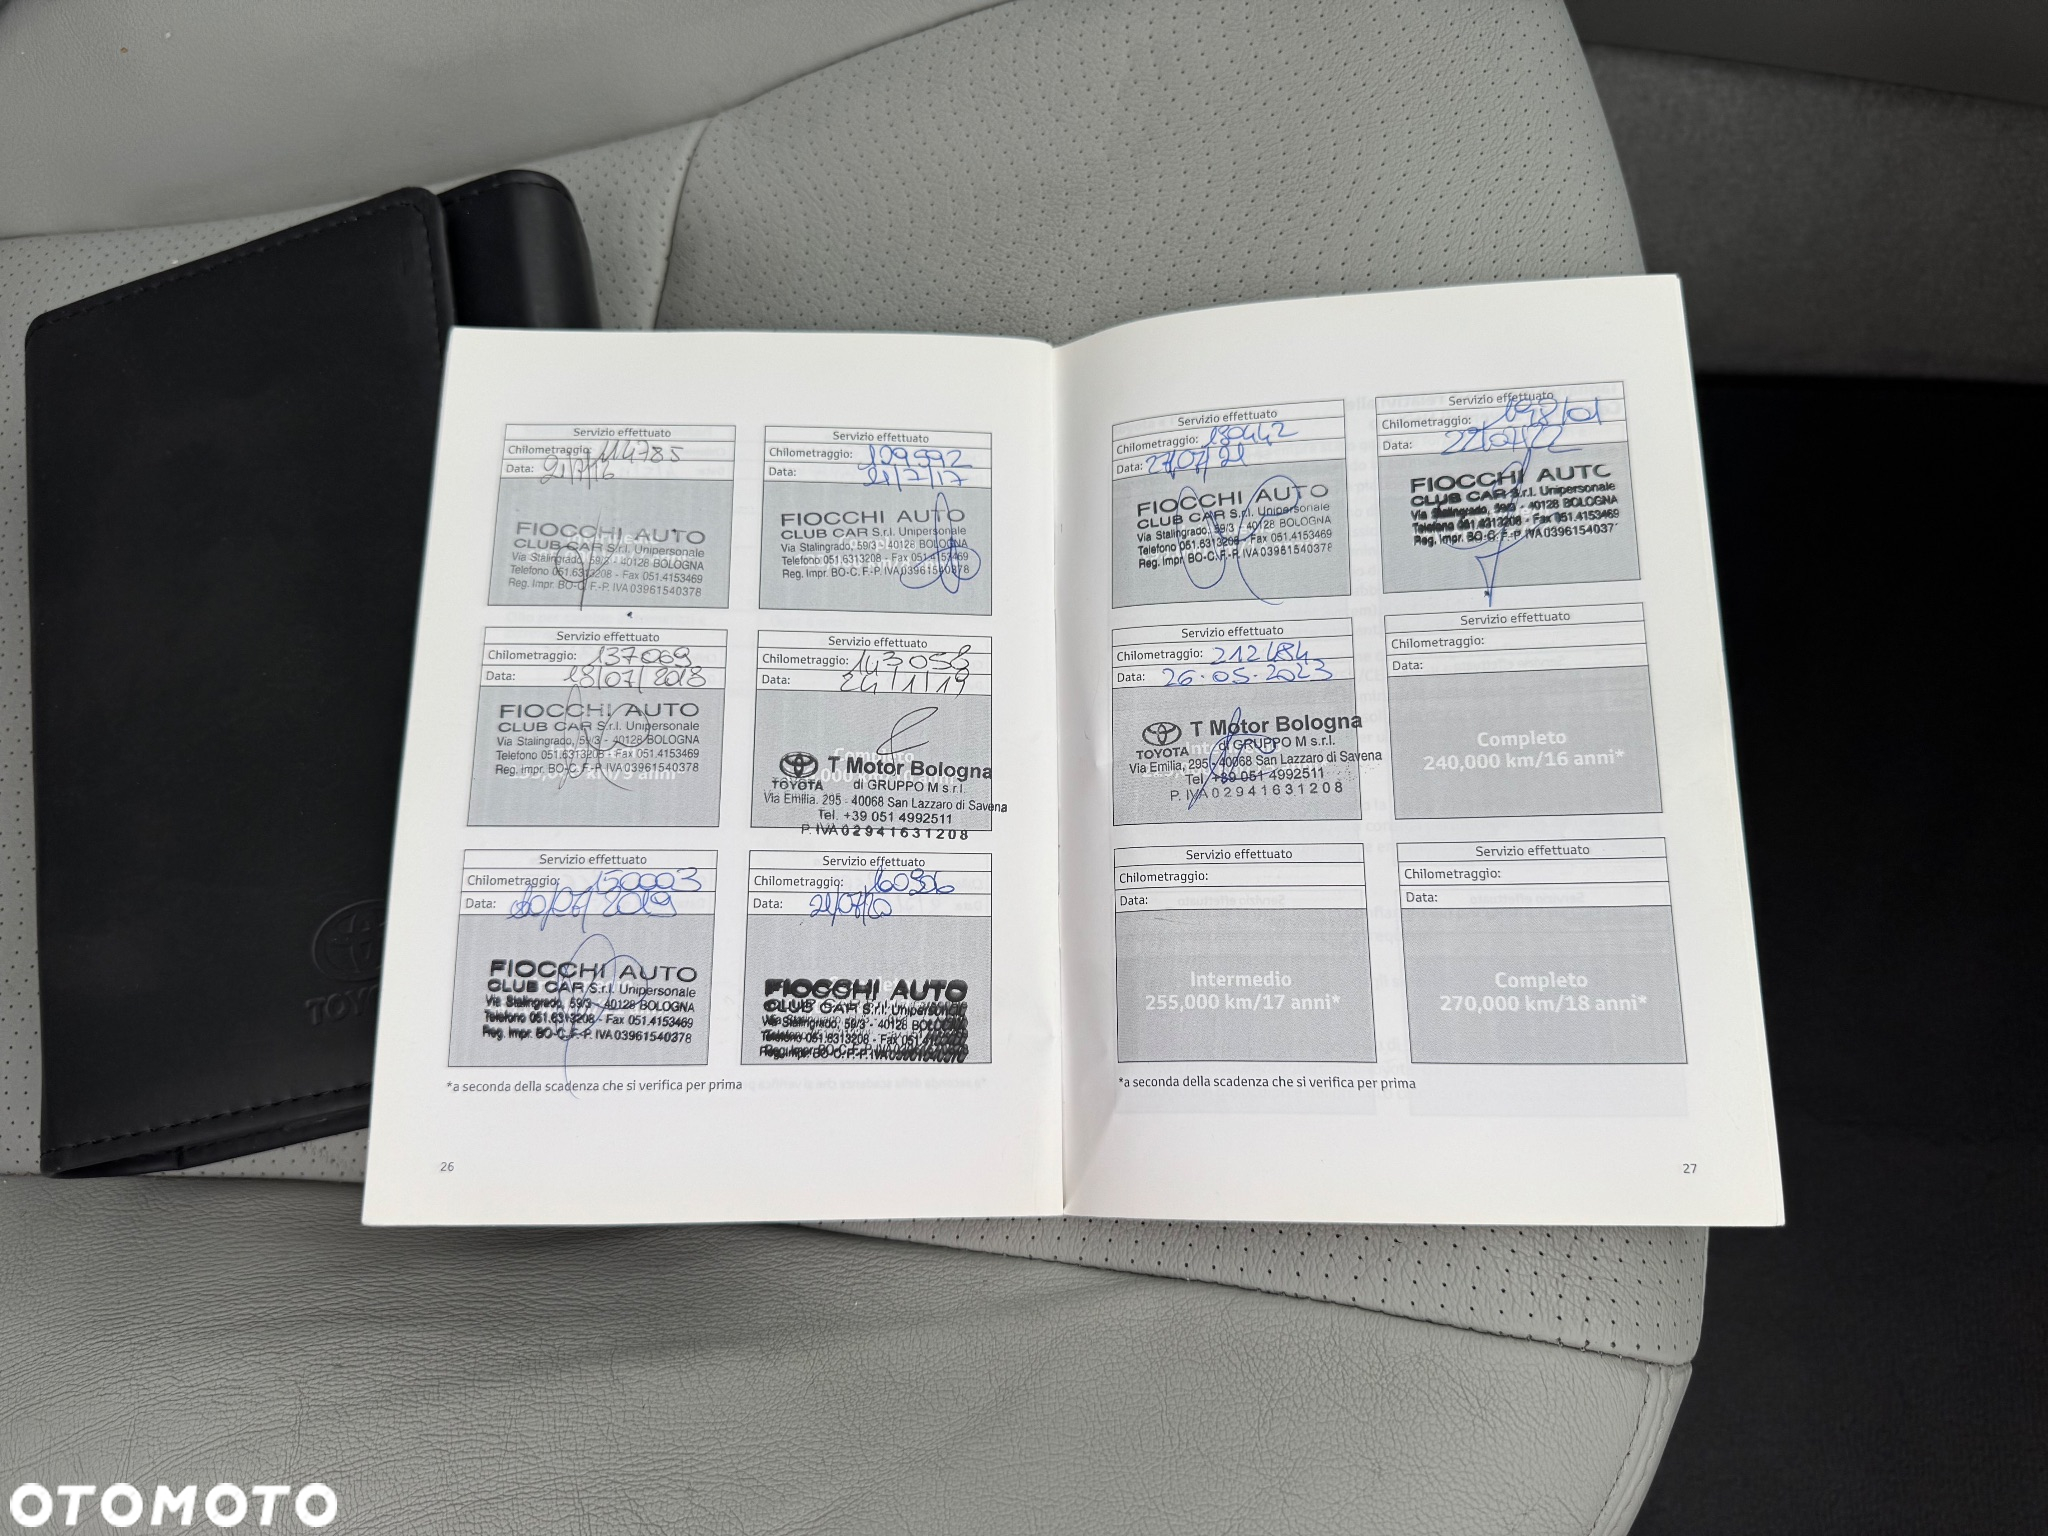 Servizio effettuato
Chilometraggio: 114785
Data: 21/7/16
FIOCCHI AUTO
CLUB CAR S.r.l. Unipersonale
Via Stalingrado, 59/3 - 40128 BOLOGNA
Telefono 051.6313208 - Fax 051.4153469
Reg. Impr. BO-C.F.-P. IVA 03961540378
Servizio effettuato
Chilometraggio: 129992
Data: 21/7/17
FIOCCHI AUTO
CLUB CAR S.r.l. Unipersonale
Via Stalingrado, 59/3 - 40128 BOLOGNA
Telefono 051.6313208 - Fax 051.4153469
Reg. Impr. BO-C.F.-P. IVA 03961540378
Servizio effettuato
Chilometraggio: 137069
Data: 18/07/2018
FIOCCHI AUTO
CLUB CAR S.r.l. Unipersonale
Via Stalingrado, 59/3 - 40128 BOLOGNA
Telefono 051.6313208 - Fax 051.4153469
Reg. impr. BO-C.F.-P. IVA 03961540378
Servizio effettuato
Chilometraggio: 143058
Data: 24/1/19
Completo
TOYOTA
T Motor Bologna
di GRUPPO M s.r.l.
Via Emilia, 295 - 40068 San Lazzaro di Savena
Tel. +39 051 4992511
P. IVA 02941631208
Servizio effettuato
Chilometraggio: 150003
Data: 20/07/2019
FIOCCHI AUTO
CLUB CAR S.r.l. Unipersonale
Via Stalingrado, 59/3 - 40128 BOLOGNA
Telefono 051.6313208 - Fax 051.4153469
Reg. Impr. BO-C.F.-P. IVA 03961540378
Servizio effettuato
Chilometraggio:
Data: 21/07/20
FIOCCHI AUTO
CLUB CAR S.r.l. Unipersonale
Via Stalingrado, 59/3 - 40128 BOLOGNA
Telefono 051.6313208 - Fax
Reg. Impr. BO-C.F.-P. IVA
*a seconda della scadenza che si verifica per prima
26
Servizio effettuato
Chilometraggio: 180442
Data: 27/07/21
FIOCCHI AUTO
CLUB CAR S.r.l. Unipersonale
Via Stalingrado, 59/3 - 40128 BOLOGNA
Telefono 051.6313208 - Fax 051.4153469
Reg. Impr. BO-C.F.-P. IVA 03961540378
Servizio effettuato
Chilometraggio: 198101
Data: 22/07/22
FIOCCHI AUTO
CLUB CAR S.r.l. Unipersonale
Via Stalingrado, 59/3 - 40128 BOLOGNA
Telefono 051.6313208 - Fax 051.4153469
Reg. Impr. BO-C.F.-P. IVA 0396154037
Servizio effettuato
Chilometraggio: 212484
Data: 26.05.2023
TOYOTA
T Motor Bologna
di GRUPPO M s.r.l.
Via Emilia, 295 - 40068 San Lazzaro di Savena
Tel. +39 051 4992511
P. IVA 02941631208
Servizio effettuato
Chilometraggio:
Data:
Completo
240,000 km/16 anni*
Servizio effettuato
Chilometraggio:
Data:
Intermedio
255,000 km/17 anni*
Servizio effettuato
Chilometraggio:
Data:
Completo
270,000 km/18 anni*
*a seconda della scadenza che si verifica per prima
27
OTOMOTO